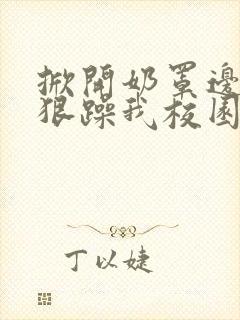 掀開奶罩邊
狠躁我校園
丁以婕